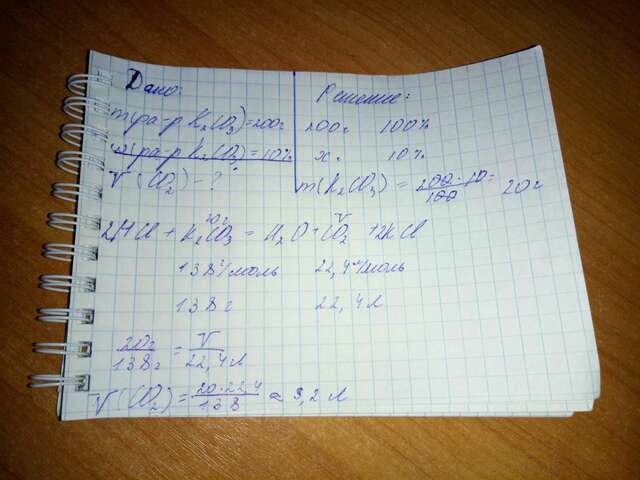 Дано:
m(ра-р K₂CO₃)=200г
ω(ра-р K₂CO₃)=10%
V(CO₂)-?
Решение:
200г 100%
x. 10%
m(K₂CO₃) = 200·10/100 = 20г
20г V
2HCl + K₂CO₃ = H₂O + CO₂ + 2KCl
138г/моль 22,4л/моль
138г 22,4л
20г/138г = V/22,4л
V(CO₂) = 20·22,4/138 ≈ 3,2л